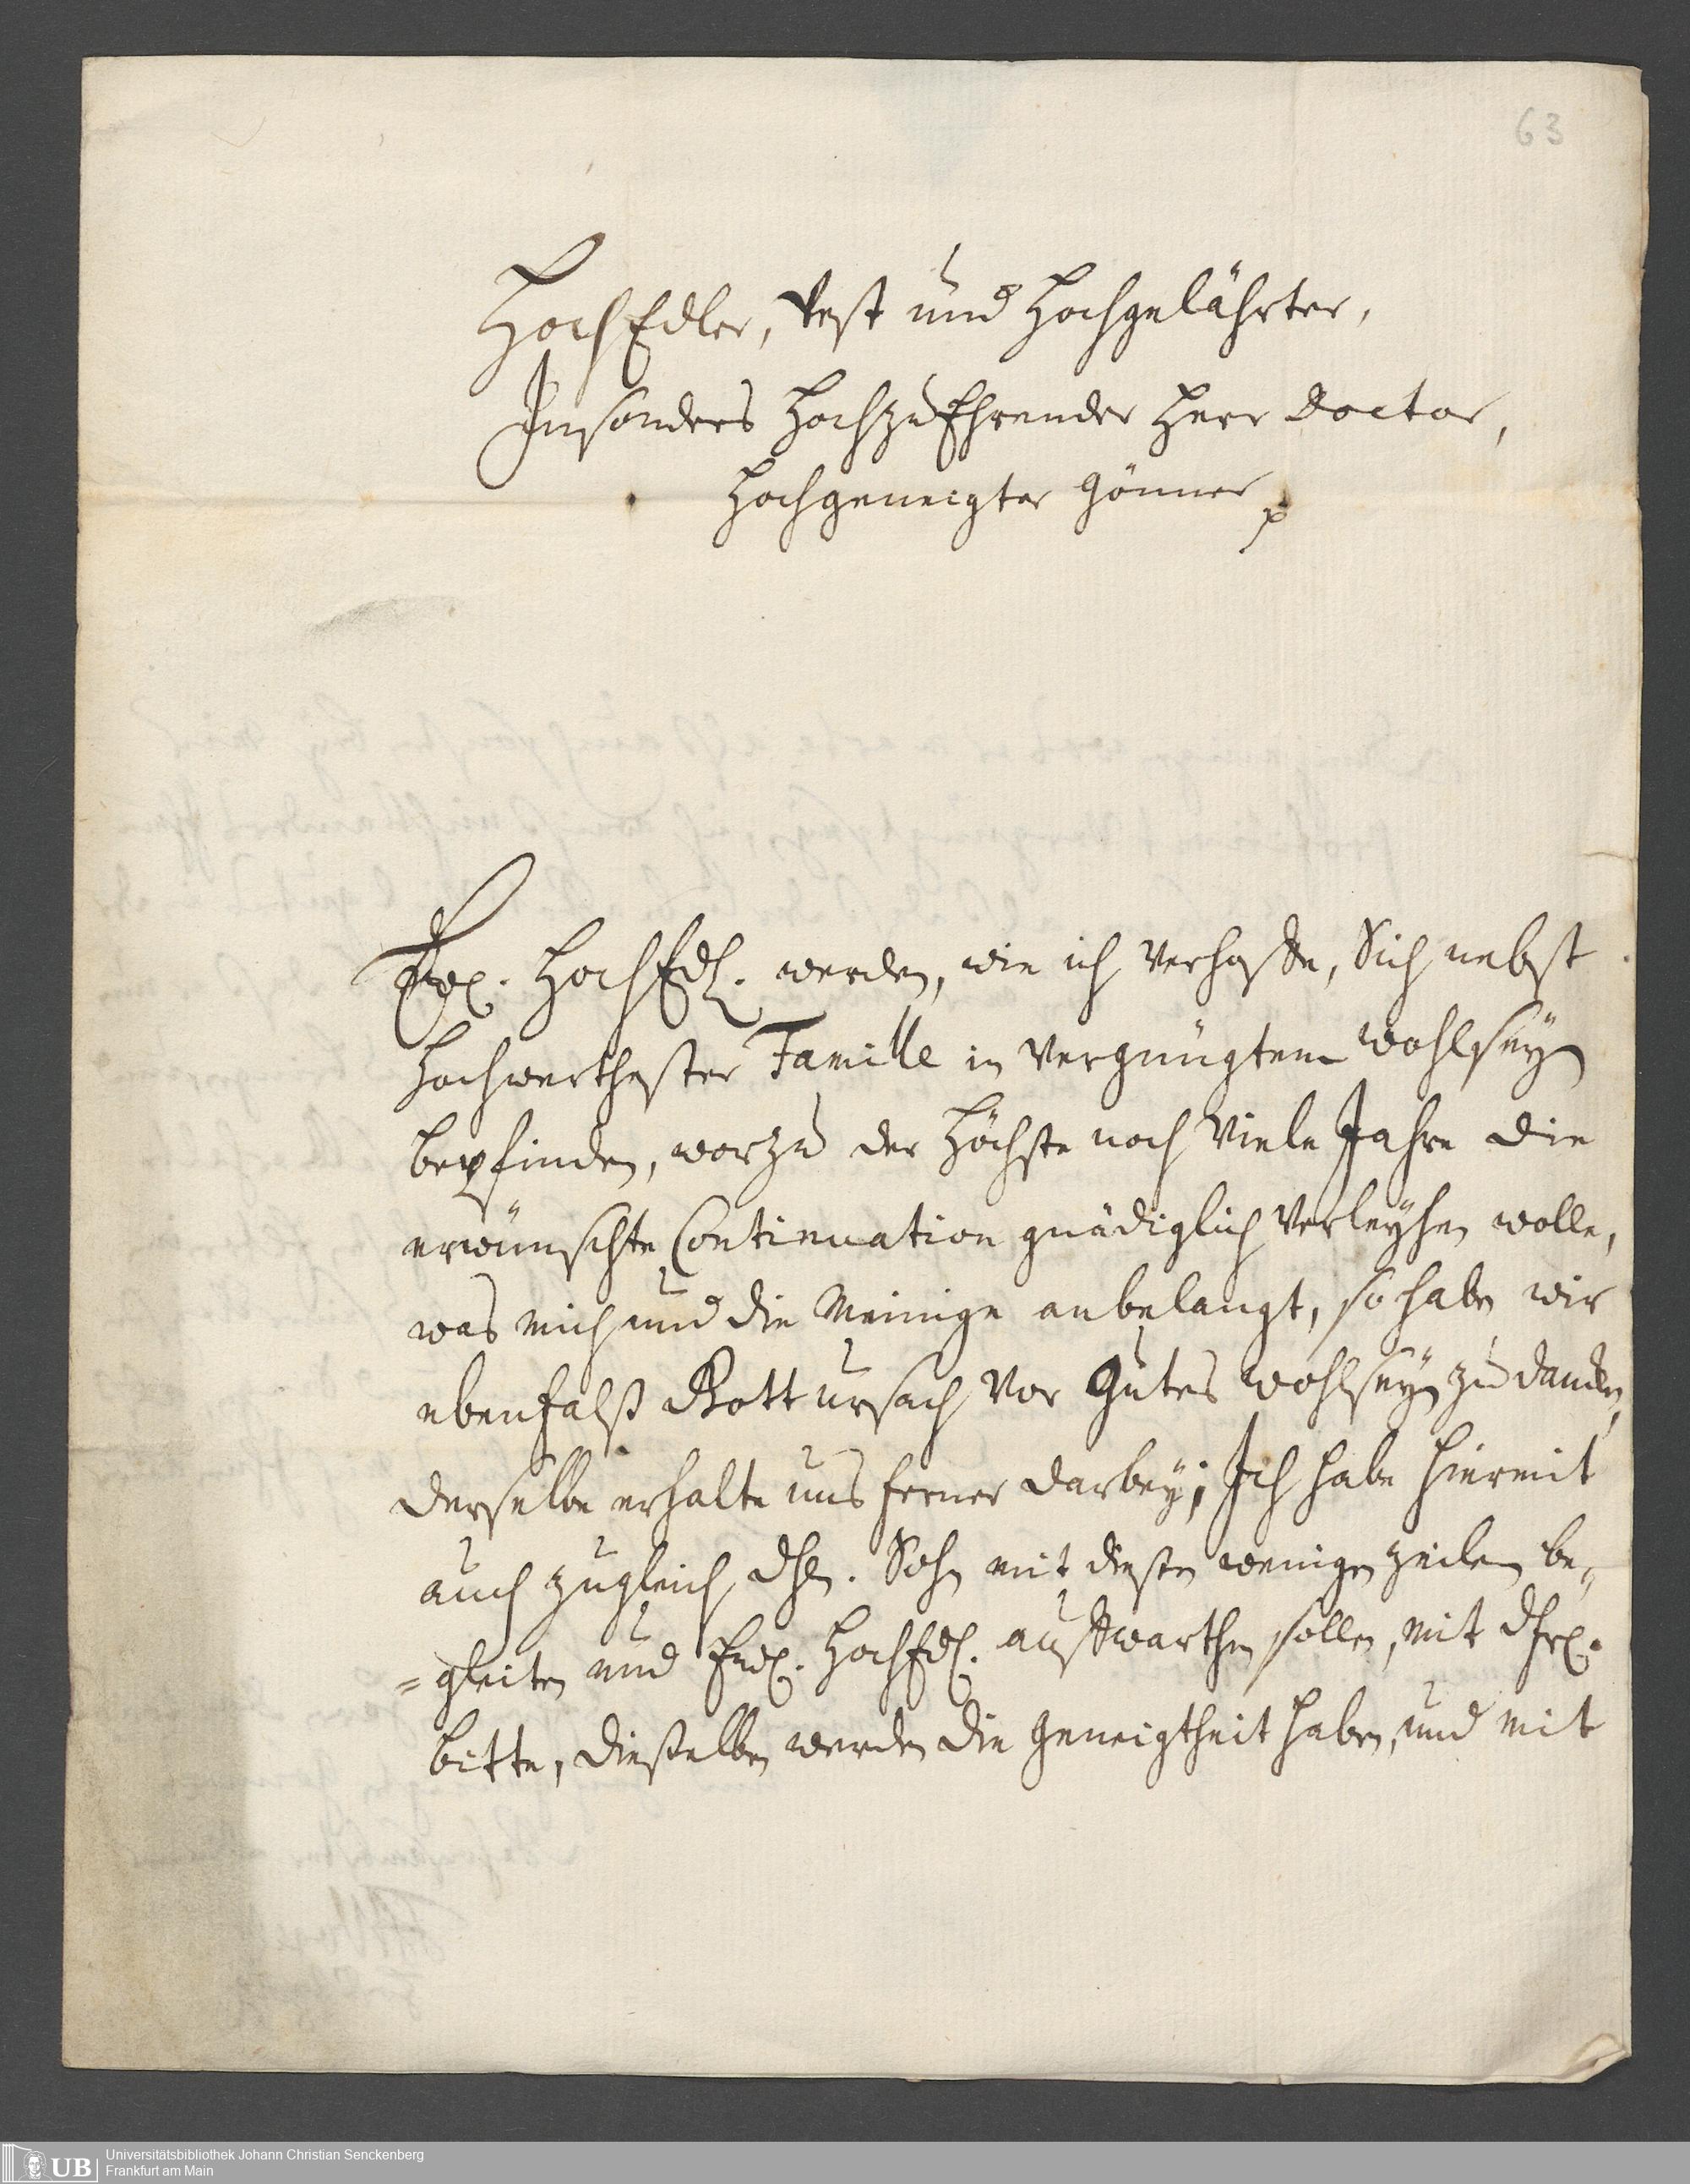 63
HochEdler, Vest und Hochgelährter,
Insonders HochzuEhrender Herr Doctor,
Hochgeneigter Gönner p
Ew. HochEdl. werden, wie ich verhoffe, Sich nebst
Hochwerthester Famille in vergnügtem wohlseyn
befinden, worzu der Höchste noch viele Jahre die
erwünschte Continuation gnädiglich verleyhen wolle,
was mich und die Meinige anbelangt, so haben wir
ebenfalß Gott ursach vor Gutes wohlseyn zu dancken,
derselbe erhalte uns ferner darbey; Ich habe hiermit
auch zugleich Sohn mit dießen wenigen zeilen be-
=gleiten und Ew. HochEdl. auffwarthen sollen, mit
bitte, dießelben werden die geneigtheit haben, und mit
UB Universitätsbibliothek Johann Christian Senckenberg
Frankfurt am Main